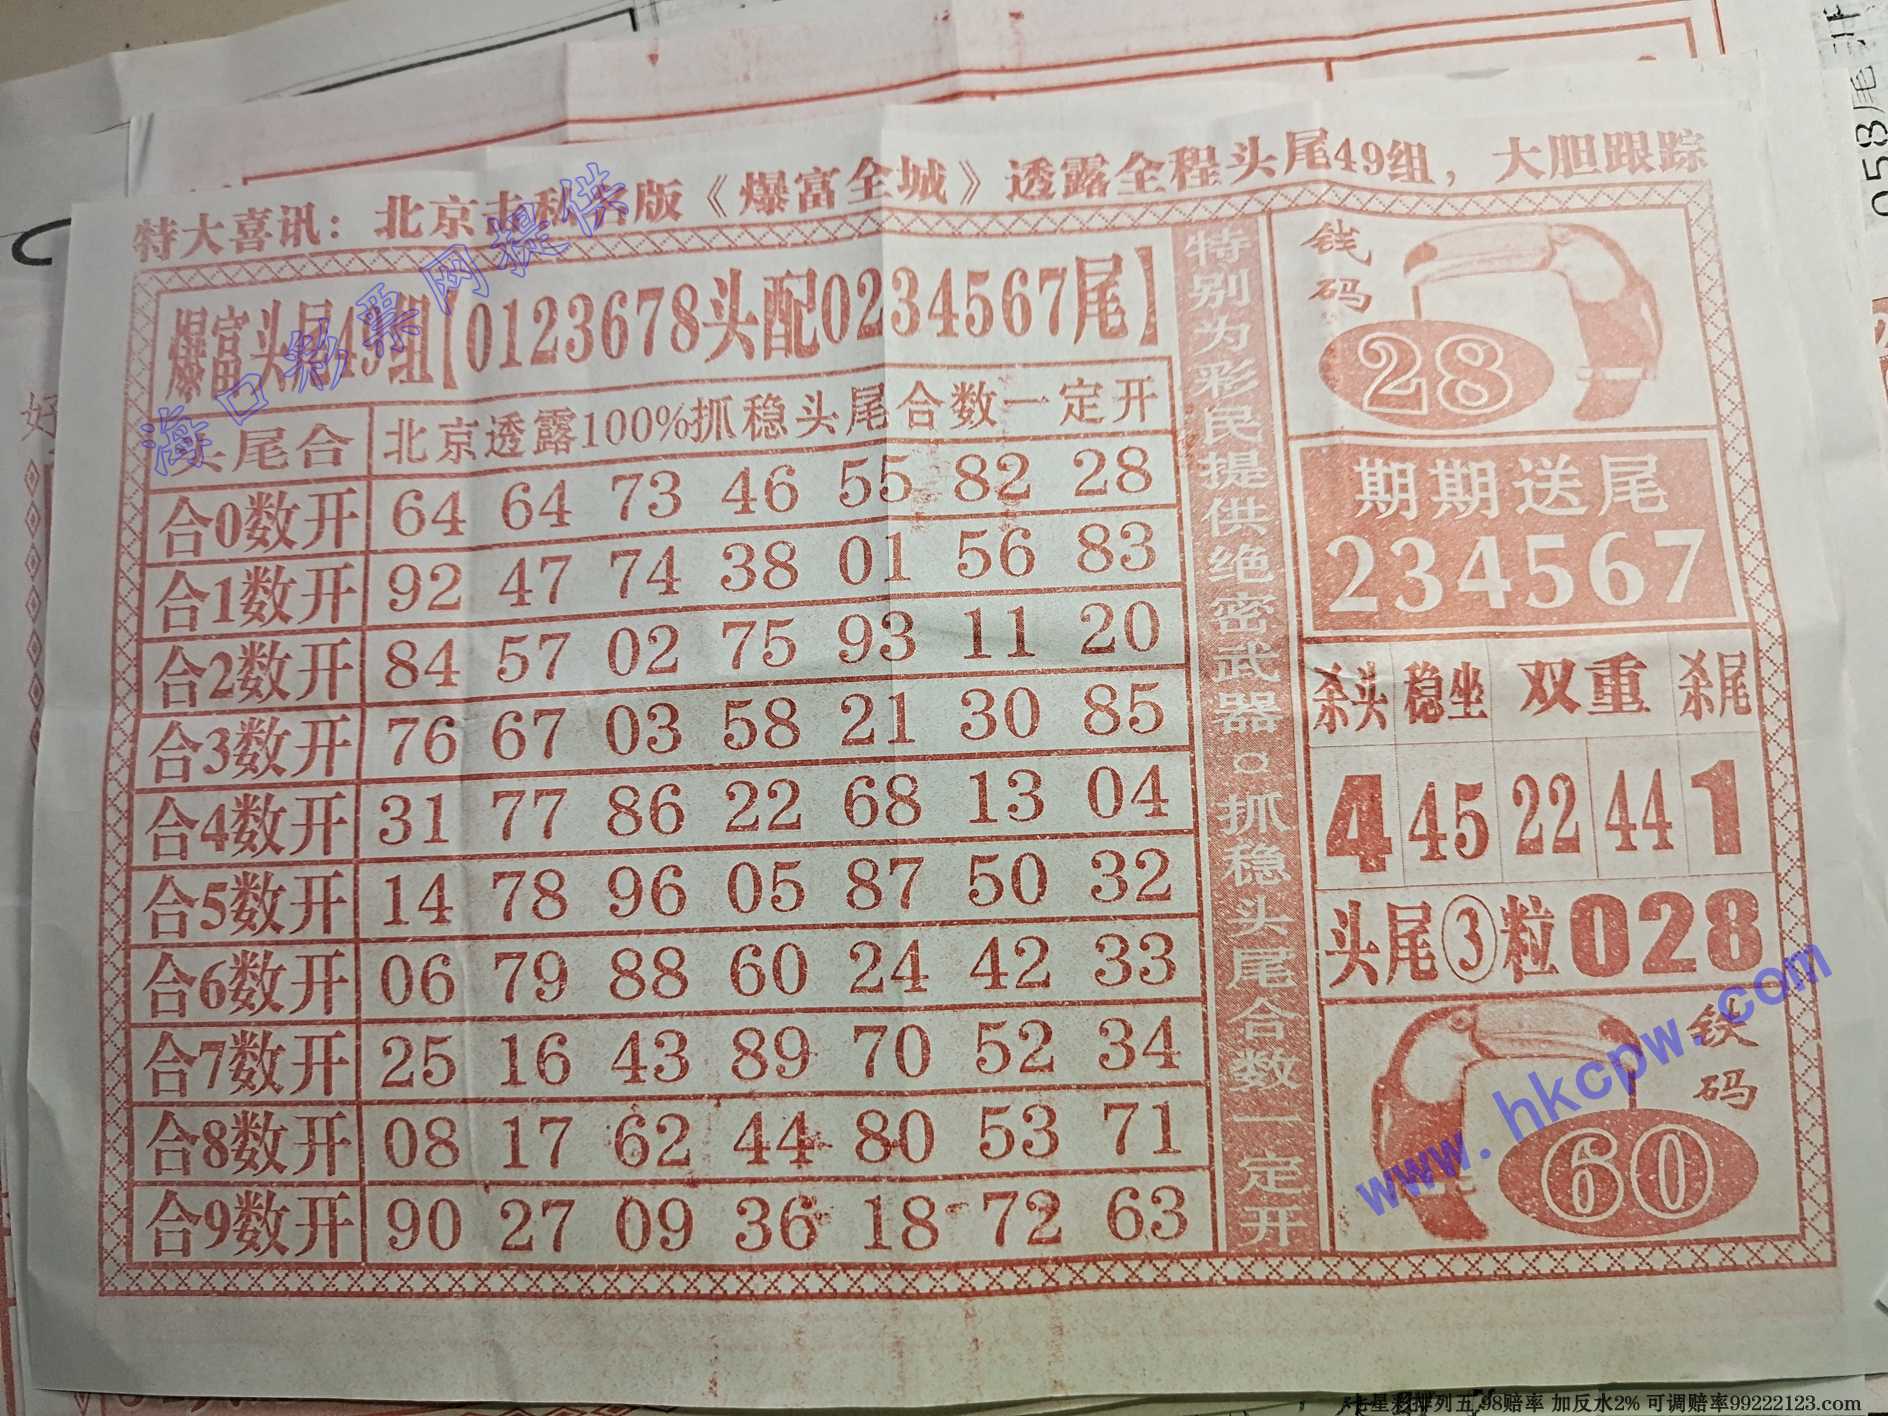 特大喜讯：北京 版《爆富全城》透露全程头尾49组，大胆跟踪
爆富头尾49组【0123678头配0234567尾】
头尾合 北京透露100%抓稳头尾合数一定开
合0数开 64 64 73 46 55 82 28
合1数开 92 47 74 38 01 56 83
合2数开 84 57 02 75 93 11 20
合3数开 76 67 03 58 21 30 85
合4数开 31 77 86 22 68 13 04
合5数开 14 78 96 05 87 50 32
合6数开 06 79 88 60 24 42 33
合7数开 25 16 43 89 70 52 34
合8数开 08 17 62 44 80 53 71
合9数开 90 27 09 36 18 72 63
特别为彩民提供绝密武器。抓稳头尾合数一定开
钱码
28
期期送尾
234567
杀头 稳坐 双重 杀尾
4 45 22 44 1
头尾③粒028
钱码
60
海口彩票网提供
www.hkcpw.com
058尾
好
七星彩排列五 98赔率 加反水2% 可调赔率99222123.com